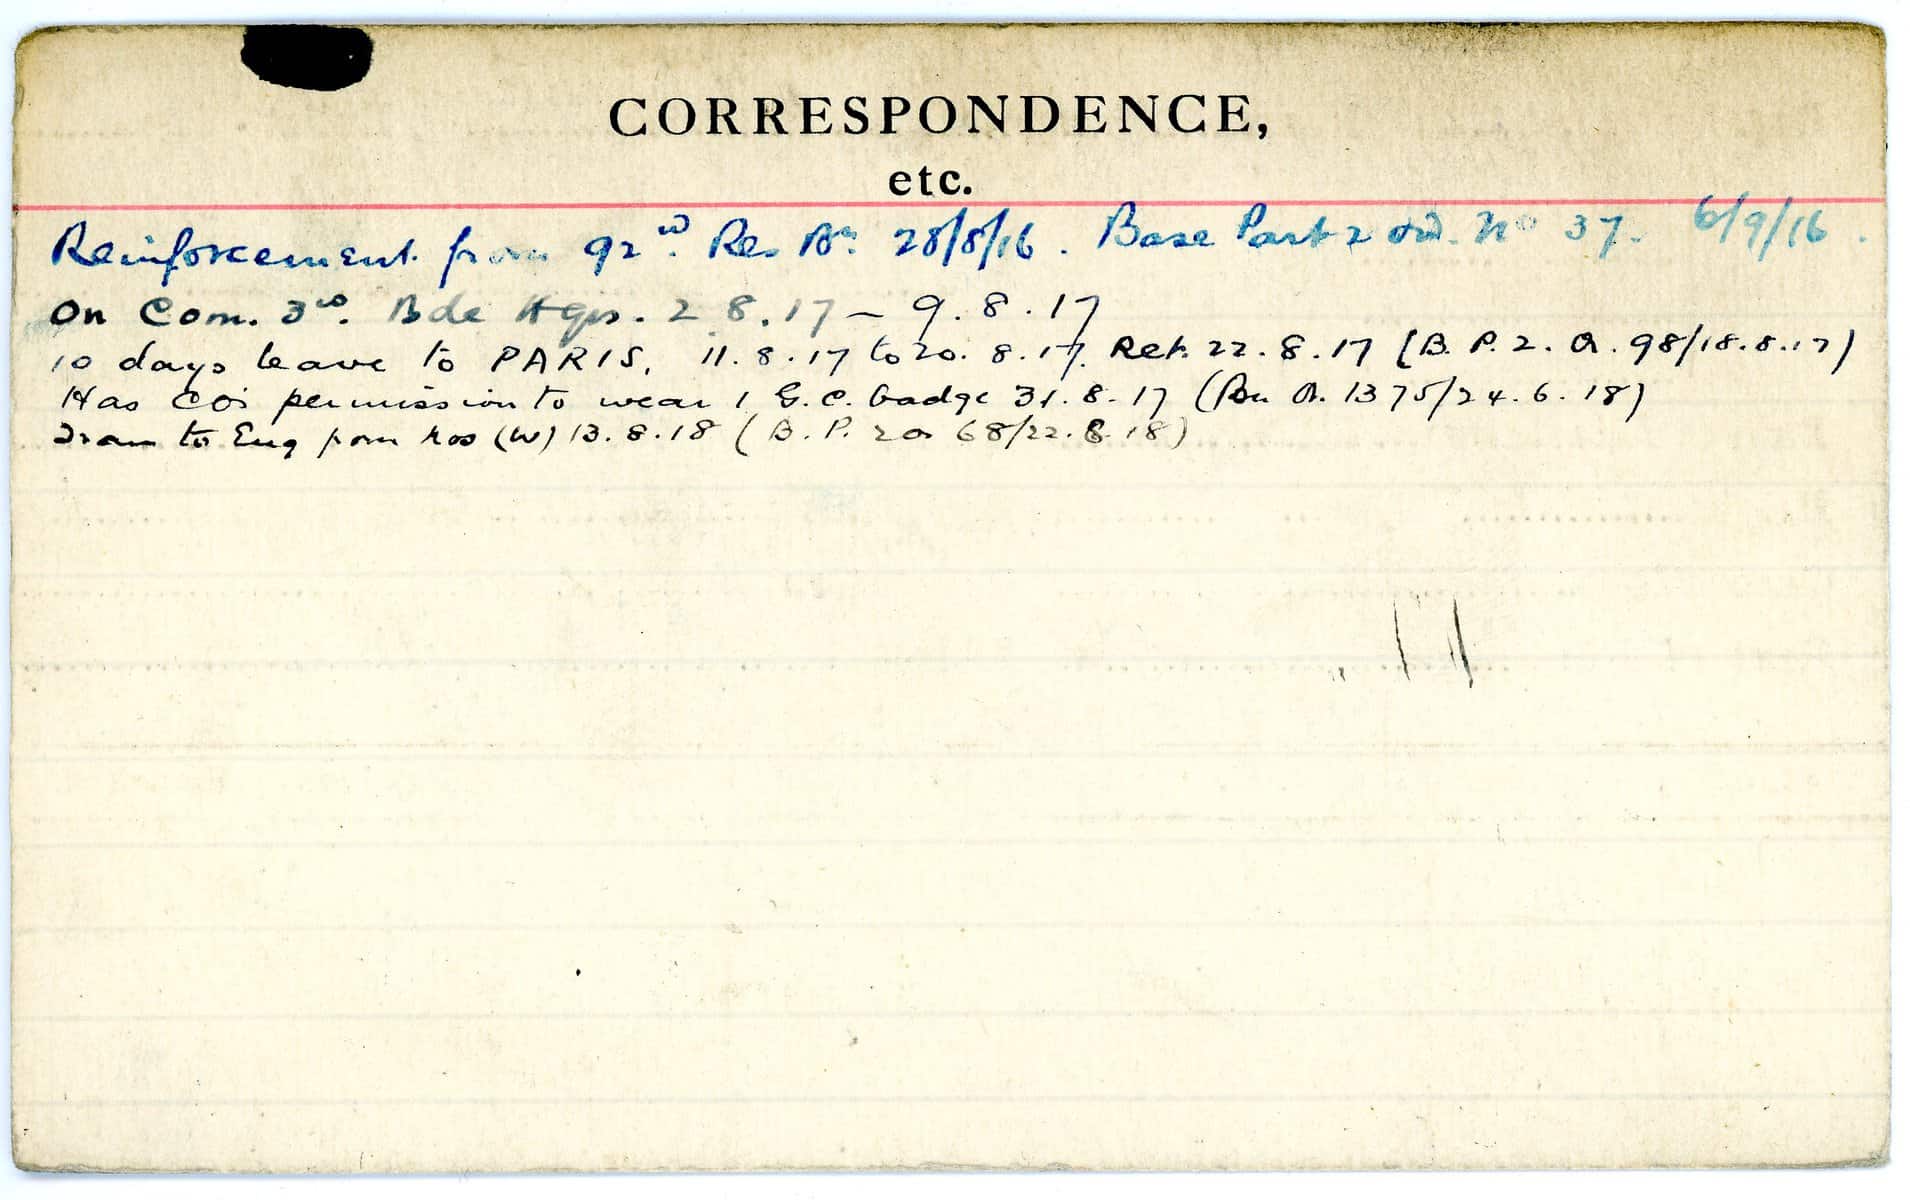 CORRESPONDENCE,
etc.
Reinforcement from 92nd. Res Bn. 28/8/16. Base Part 2 ord. No 37. 6/9/16.
On Com. 3rd. Bde Hqrs. 2.8.17 – 9.8.17
10 days leave to PARIS, 11.8.17 to 20.8.17. Ret. 22.8.17 (B.P.2.O. 98/18.8.17)
Has COs permission to wear 1 G.C. badge 31.8.17 (Bn O. 1375/24.6.18)
Trans to Eng from hos (W) 13.8.18 (B.P. 2o 68/22.8.18)